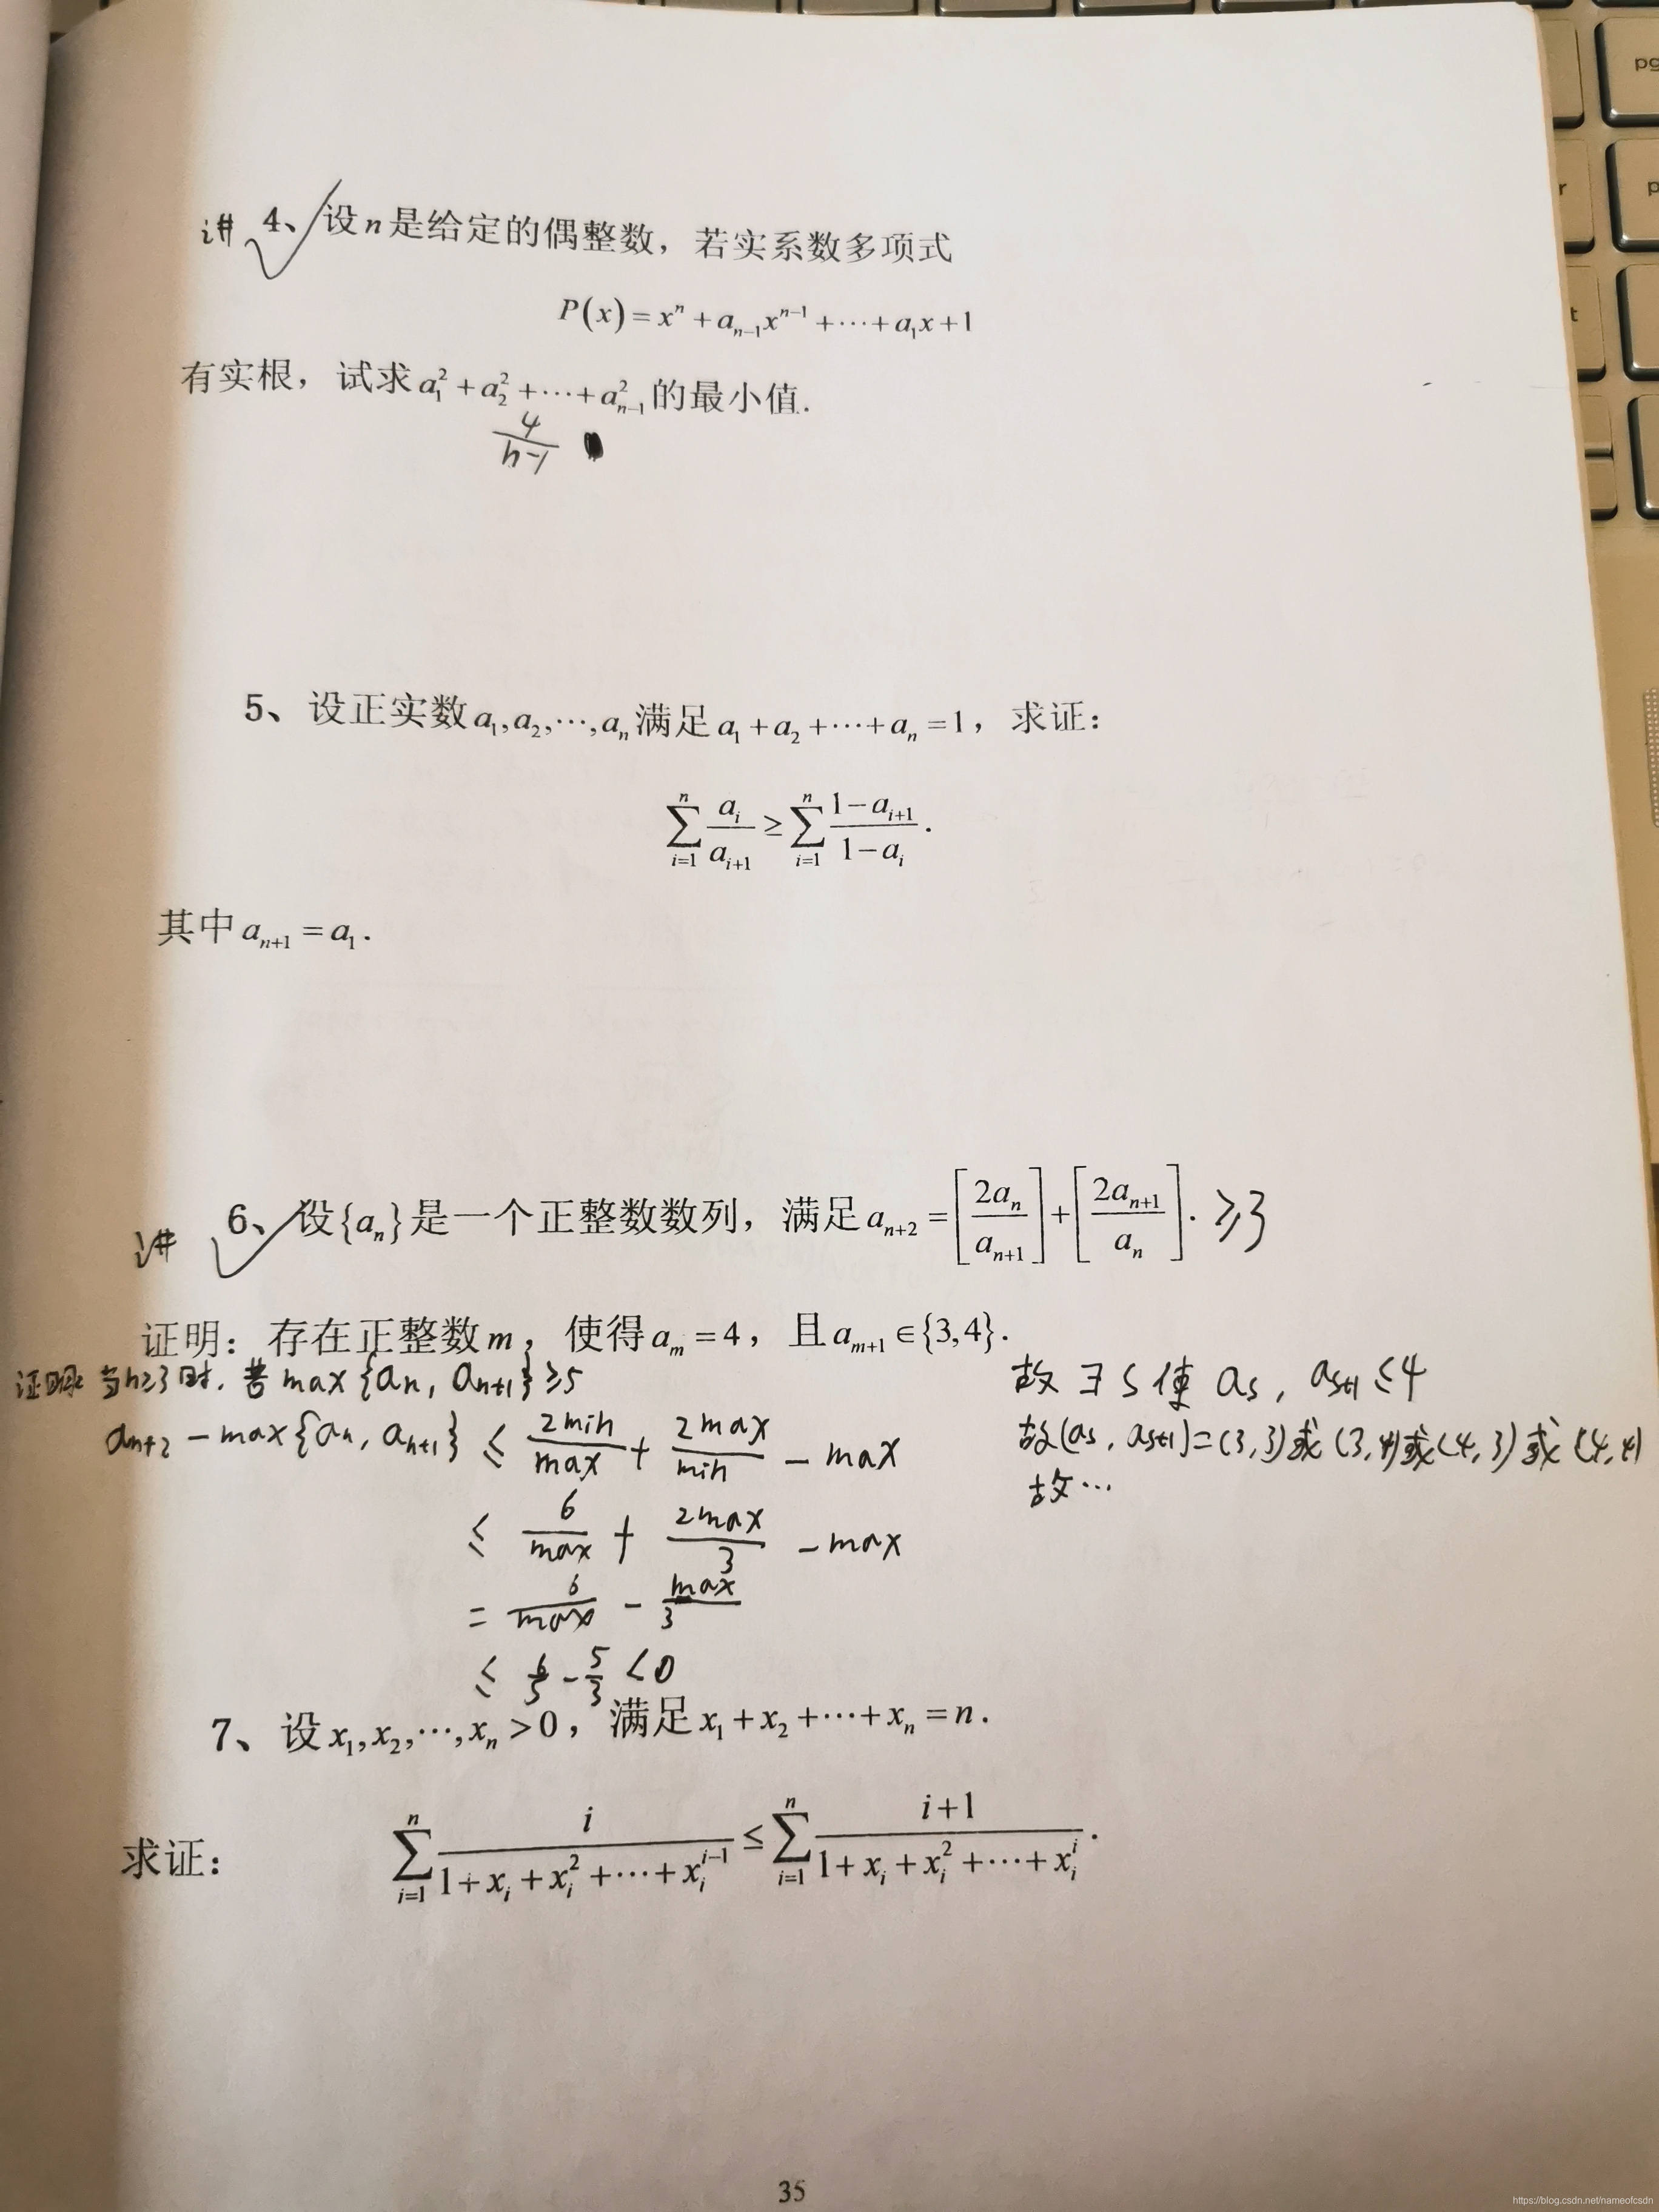 讲 4、设n是给定的偶整数，若实系数多项式
P(x)=x^n+a_{n-1}x^{n-1}+⋯+a_1x+1
有实根，试求a_1^2+a_2^2+⋯+a_{n-1}^2的最小值.
\frac{4}{n-1}
5、设正实数a_1,a_2,⋯,a_n满足a_1+a_2+⋯+a_n=1，求证：
\sum_{i=1}^{n}\frac{a_i}{a_{i+1}}≥\sum_{i=1}^{n}\frac{1-a_{i+1}}{1-a_i}.
其中a_{n+1}=a_1.
讲 6、设{a_n}是一个正整数数列，满足a_{n+2}=[\frac{2a_n}{a_{n+1}}]+[\frac{2a_{n+1}}{a_n}]. ≥3
证明：存在正整数m，使得a_m=4，且a_{m+1}∈{3,4}.
证明: 当n≥3时. 若max{a_n, a_{n+1}}≥5
a_{n+2}-max{a_n, a_{n+1}} ≤ \frac{2min}{max}+\frac{2max}{min}-max
≤ \frac{6}{max}+\frac{2max}{3}-max
= \frac{6}{max}-\frac{max}{3}
≤ \frac{6}{5}-\frac{5}{3}<0
故∃s使a_s, a_{s+1}≤4
故(a_s, a_{s+1})=(3,3)或(3,4)或(4,3)或(4,4)
故⋯
7、设x_1,x_2,⋯,x_n>0，满足x_1+x_2+⋯+x_n=n.
求证： \sum_{i=1}^{n}\frac{i}{1+x_i+x_i^2+⋯+x_i^{i-1}}≤\sum_{i=1}^{n}\frac{i+1}{1+x_i+x_i^2+⋯+x_i^i}.
35
https://blog.csdn.net/nameofcsdn
pg
r
p
t